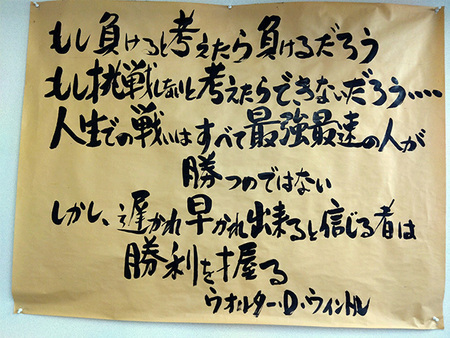 もし負けると考えたら負けるだろう
もし挑戦しないと考えたらできないだろう・・・・
人生での戦いはすべて最強最速の人が
勝つのではない
しかし、遅かれ早かれ出来ると信じる者は
勝利を握る
ウオルター・D・ウィントル